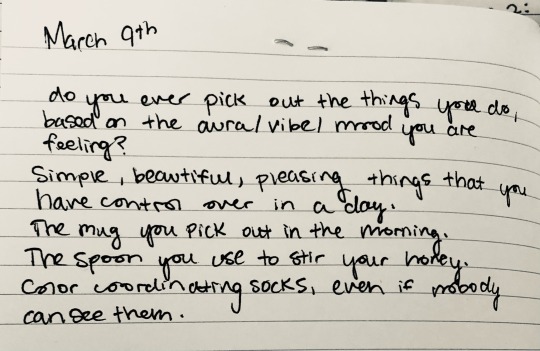 2:
March 9th
do you ever pick out the things you do,
based on the aura/vibe/mood you are
feeling?
Simple, beautiful, pleasing things that you
have control over in a day.
The mug you pick out in the morning.
The spoon you use to stir your honey.
Color coordinating socks, even if nobody
can see them.